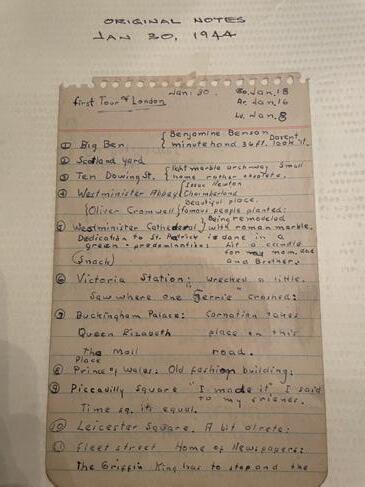 ORIGINAL NOTES
JAN 30, 1944
first Tour of London Jan. 30. Jan. 18
Ar. Jan. 16
Lv. Jan. 8
① Big Ben { Benjomine Benson
minute hand 36 ft. Doesnt look it.
② Scotland yard
③ Ten Dowing St. { light marble archway small
home rather obsolete.
④ Westminister Abbey { Issac Newton
Chamberland
beautiful place.
{Oliver Cromwell} famous people planted:
⑤ Westminister Cathederal } Being remodeled
with roman marble.
Dedication to St. Patrick is done in a
green predominating. Lit a candle
for my mom, dad
and Brother.
(Snack)
⑥ Victoria Station: wrecked a little.
Saw where one "Jerrie" crashed:
⑦ Buckingham Palace: Cornation takes
Queen Elizabeth place on this
The Mall road.
Place
⑧ Prince of Wales: Old fashion building:
⑨ Piccadilly Square "I made it" I said
to my friends.
Time sq. its equal.
⑩ Leicester Square. A bit
⑪ Fleet street Home of Newspapers:
The Griffin King has to stop and the